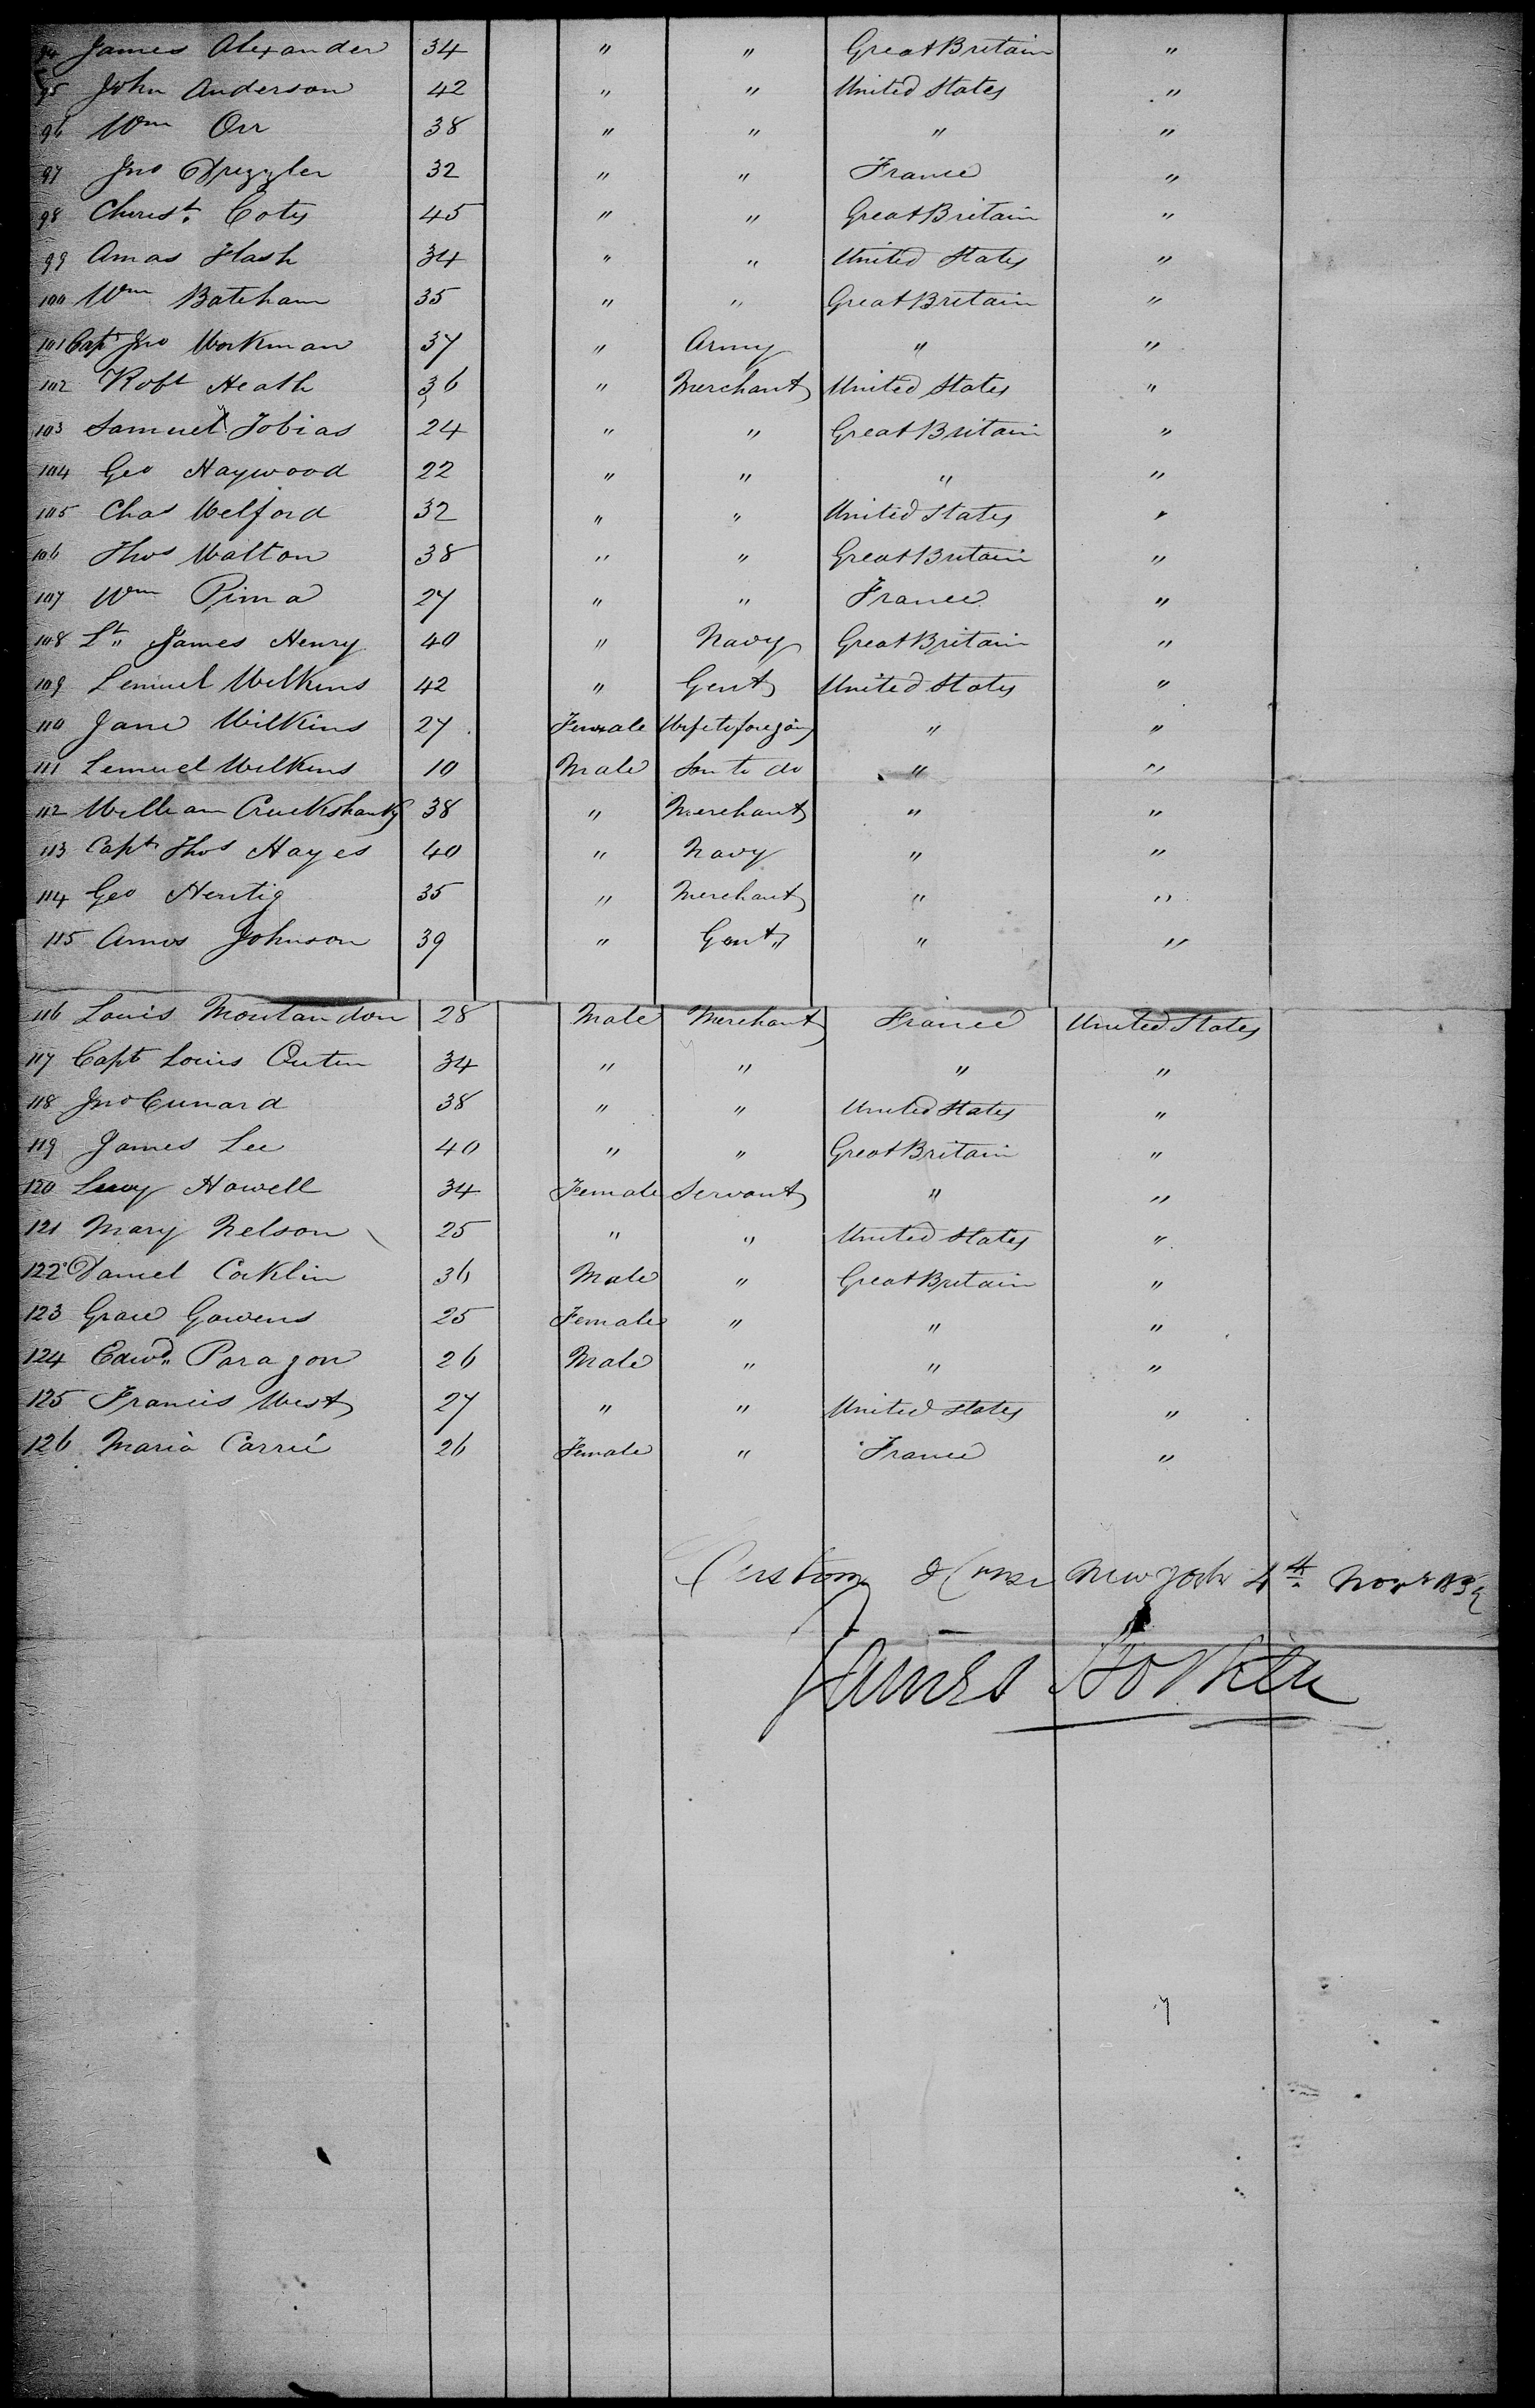 94 James Alexander 34 " " Great Britain "
95 John Anderson 42 " " United States "
96 Wm Orr 38 " " " "
97 Jno 32 " " France "
98 Christ. Coty 45 " " Great Britain "
99 Amos Flash 34 " " United States "
100 Wm Bateham 35 " " Great Britain "
101 Capt Jno Workman 37 " Army " "
102 Robt Heath 36 " Merchant United States "
103 Samuel Tobias 24 " " Great Britain "
104 Geo Haywood 22 " " " "
105 Chas Welford 32 " " United States "
106 Thos Walton 38 " " Great Britain "
107 Wm Pima 27 " " France "
108 Lt James Henry 40 " Navy Great Britain "
109 Lemuel Wilkins 42 " Gent United States "
110 Jane Wilkins 27 Female Wife to foregoing " "
111 Lemuel Wilkins 10 Male Son to do " "
112 William Cruckshank 38 " Merchant " "
113 Capt Thos Hayes 40 " Navy " "
114 Geo Hentig 35 " Merchant " "
115 Amos Johnson 39 " Gent " "
116 Louis Montandon 28 Male Merchant France United States
117 Capt Louis 34 " " " "
118 Jno Cunard 38 " " United States "
119 James Lee 40 " " Great Britain "
120 Lucy Howell 34 Female Servant " "
121 Mary Nelson 25 " " United States "
122 Daniel Cocklin 36 Male " Great Britain "
123 Grace Gowens 25 Female " " "
124 Edwd Paragon 26 Male " " "
125 Francis West 27 " " United States "
126 Maria Carrié 26 Female " France "
Custom House New York 4th Novr
James